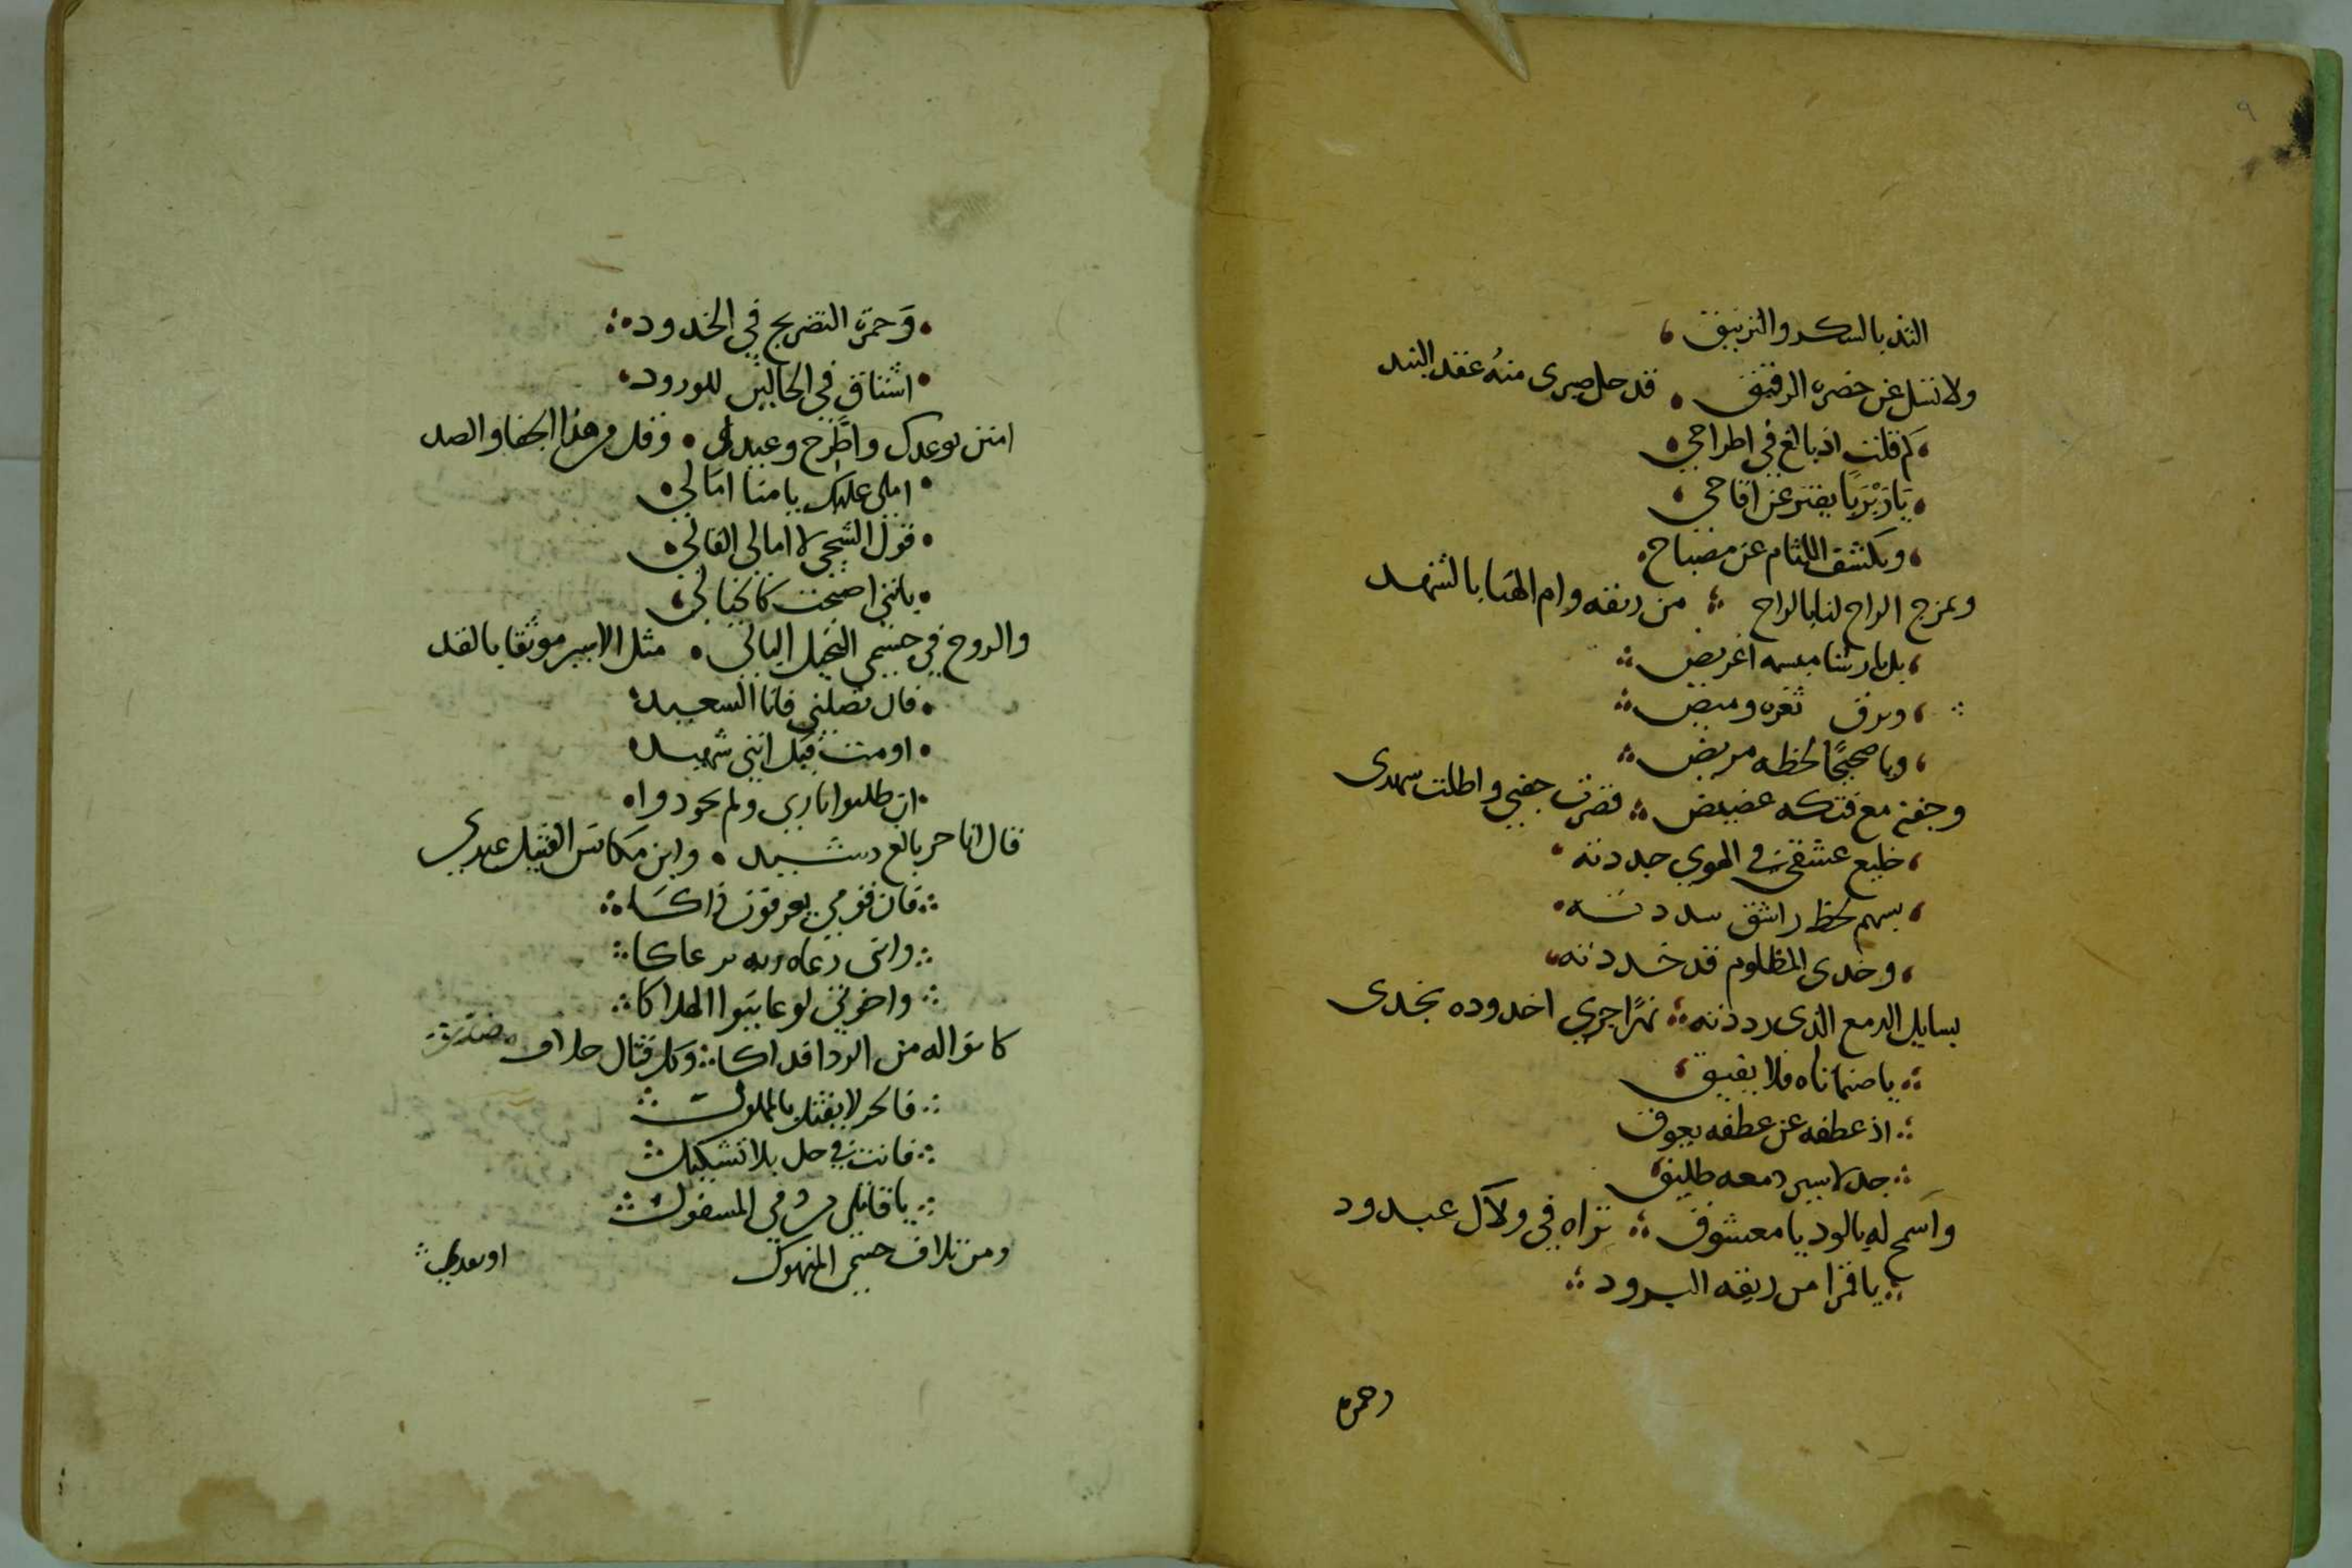 ٩
التذ بالسكر والتربيق
ولا تسل عن خصره الرقيق قد حل صبرى منه عقد البند
كم قلت اذ بالغ في اطراحي
يا ربربا يفتر عن اقاحي
ويكشف اللثام عن مصباح
ويمزج الراح لنا بالراح من ريقه وام الهنا بالشهد
بل يا رشا مبسمه اغريض
وبرق ثغره وميض
ويا صحيحًا لحظه مريض
وجفنه مع فتكه غضيض قصرت جفني واطلت سهدى
خليع عشقي في الهوي جددته
بسهم لحظ راشق سددته
وخدى المظلوم قد خددته
بسايل الدمع الذى رددته نهرًا جري اخدوده بخدى
يا صنما تاه فلا يفيق
اذ عطفه عن عطفه يعوق
جد لاسير دمعه طليق
واسمح له بالود يا معشوق تراه في ولآل عبد ود
يا قمرا من ريقه البرود
وحمرة
وَحمرة التضريج في الخدود
اشتاق في الحالين للورود
امنن بوعدك واطّرح وعيدى وقلل من هذا الجفا والصد
املى عليك يا منا امالي
قول الشجي لا امالي القالي
بانني اصبحت كالخيالي
والروح في جسمي النحيل البالي مثل الاسير موثقا بالقد
فان تصلني فانا السعيد
او مت قيل انني شهيد
ان طلبوا ثاري ولم يجودوا
فال انا حر بالغ رشيد وابن مكانس القتيل عبدي
فان قومي يعرفون ذاكا
وانني رعاه ربه يرعاكا
واخوتي لو عاينوا الهلاكا
كانوا له من الردا فداكا وكل قتال
فالحر لا يقتل بالمملوك
فانت في حل بلا تشكيك
يا قاتلي من دمي المسفوك
ومن تلاف جسمي المنهوك او بعدي